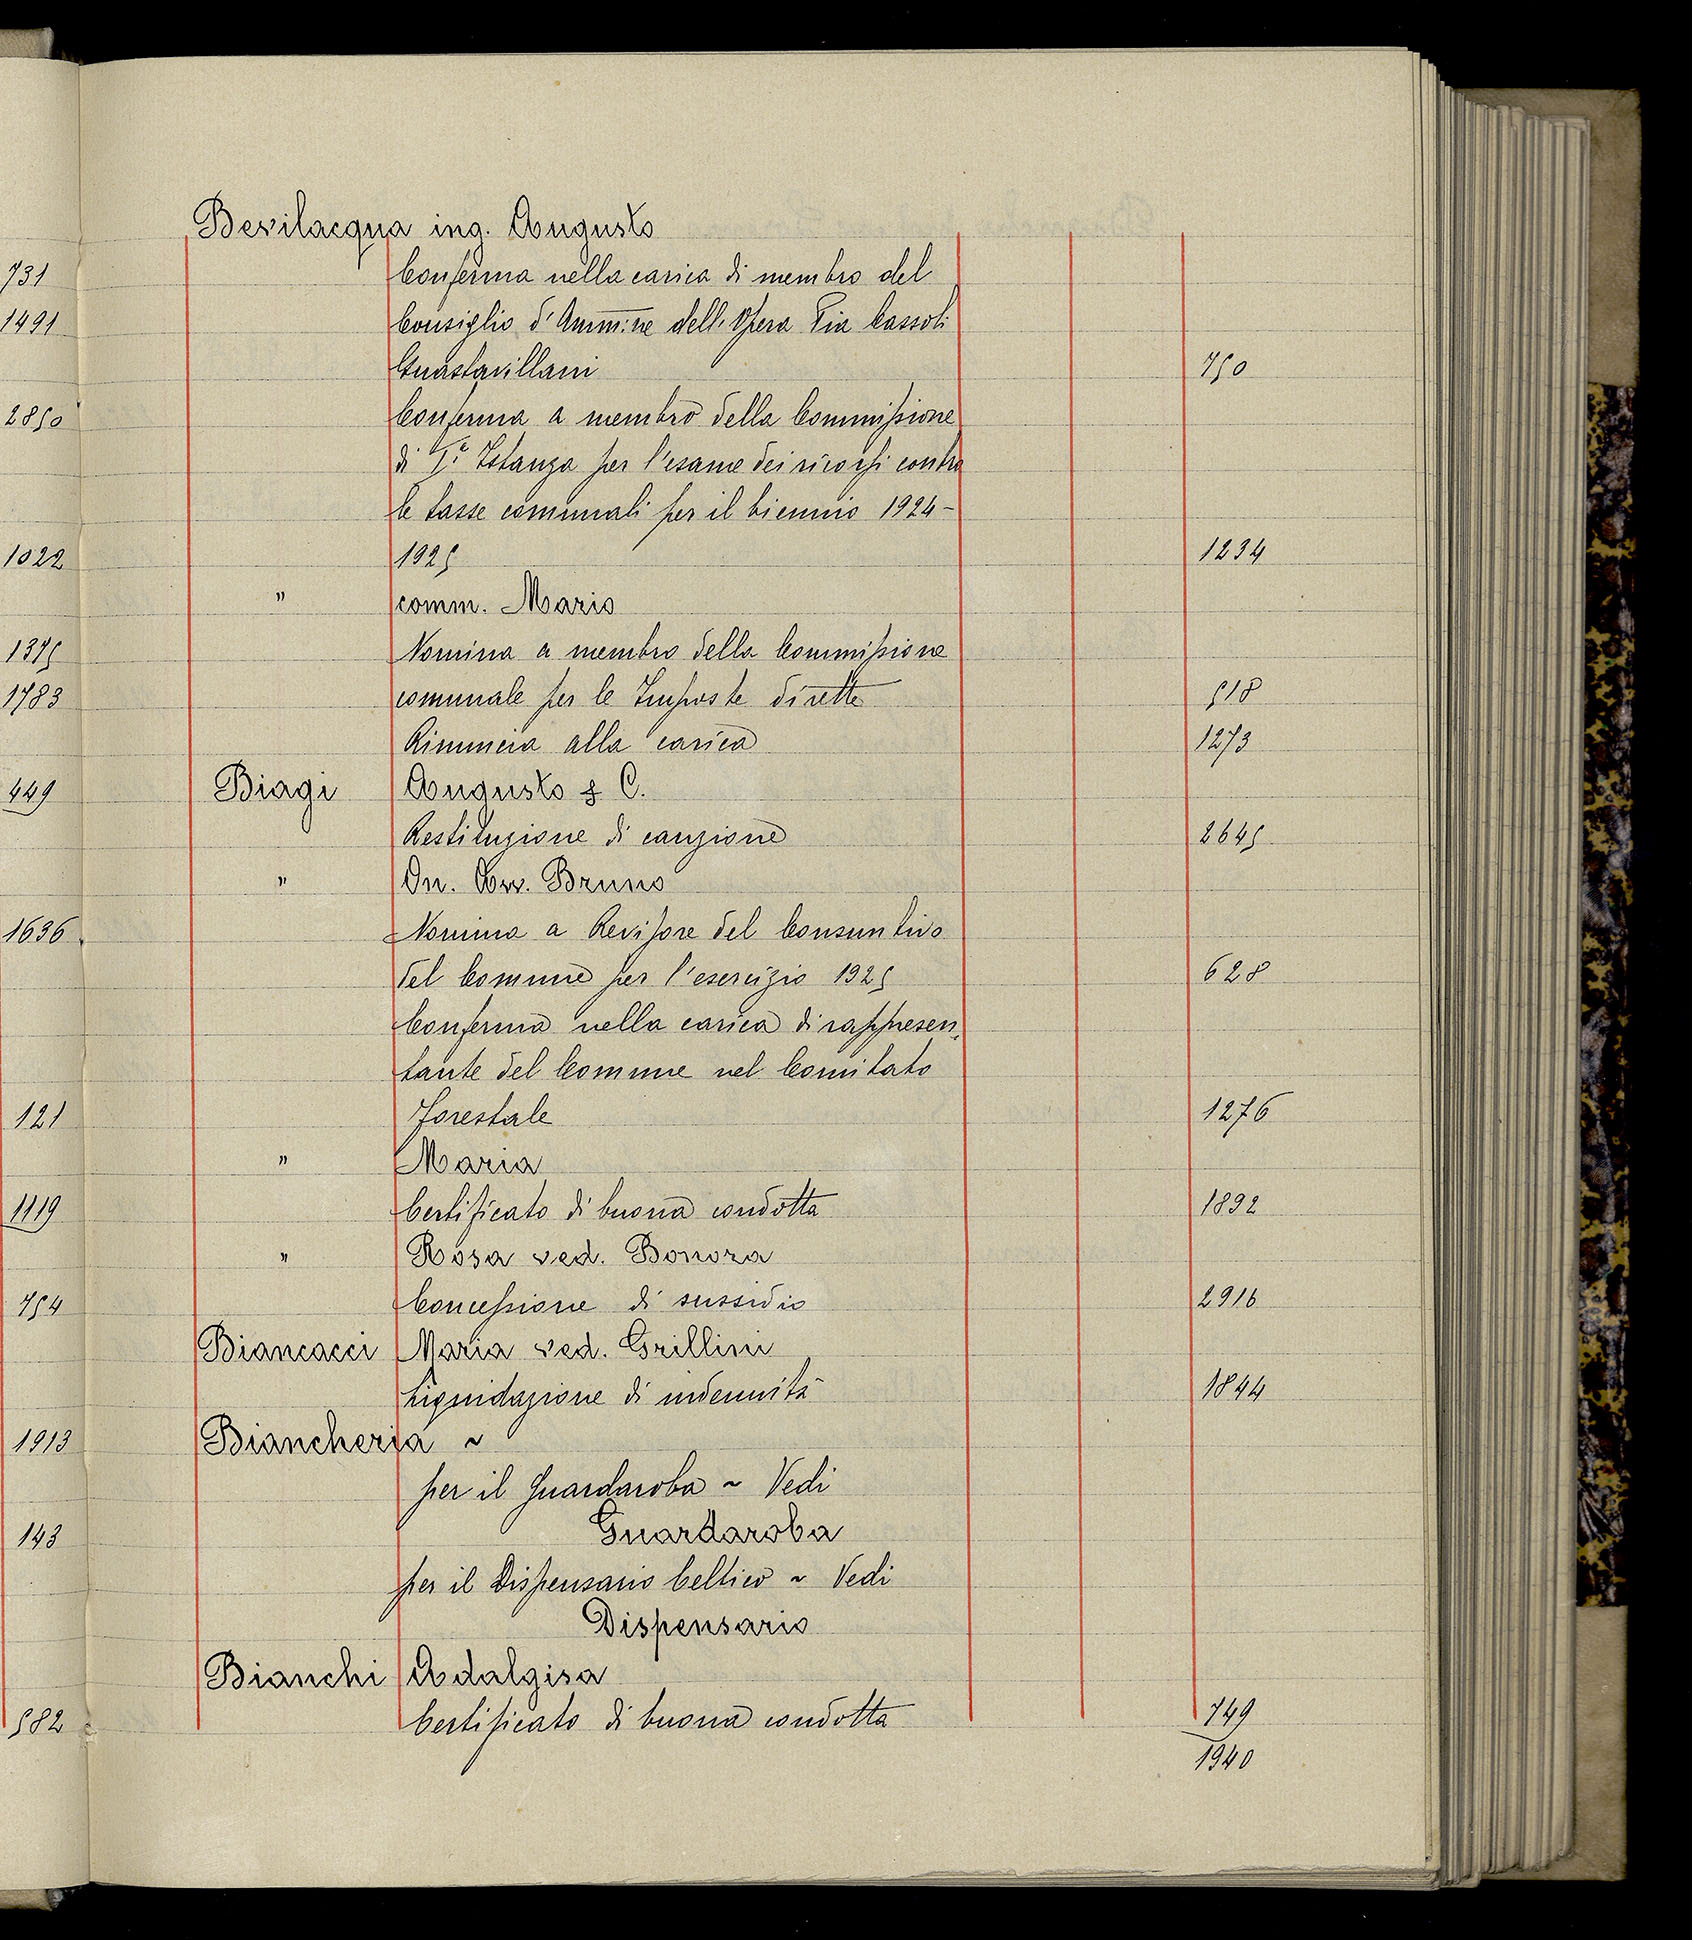 Bevilacqua ing. Augusto
731
Conferma nella carica di membro del
1491
Consiglio d'Amm:ne dell'Opera Pia Cassoli
Guastavillani 750
2850
Conferma a membro della Commissione
di Iª Istanza per l'esame dei ricorsi contro
le tasse comunali per il biennio 1924-
1022
1925 1234
" comm. Mario
1375
Nomina a membro della Commissione
1783
comunale per le Imposte dirette 518
Rinuncia alla carica 1273
449
Biagi Augusto & C.
Restituzione di cauzione 2645
" On. Avv. Bruno
1636
Nomina a Revisore del Consuntivo
del Comune per l'esercizio 1925 628
Conferma nella carica di rappresen,
tante del Comune nel Comitato
121
forestale 1276
" Maria
1119
Certificato di buona condotta 1892
" Rosa ved. Bonora
754
Concessione di sussidio 2916
Biancacci Maria ved. Grillini
Liquidazione di indennità 1844
1913
Biancheria ~
per il guardaroba ~ Vedi
143
Guardaroba
per il Dispensario Celtico ~ Vedi
Dispensario
Bianchi Adalgisa
582
Certificato di buona condotta 749
1940